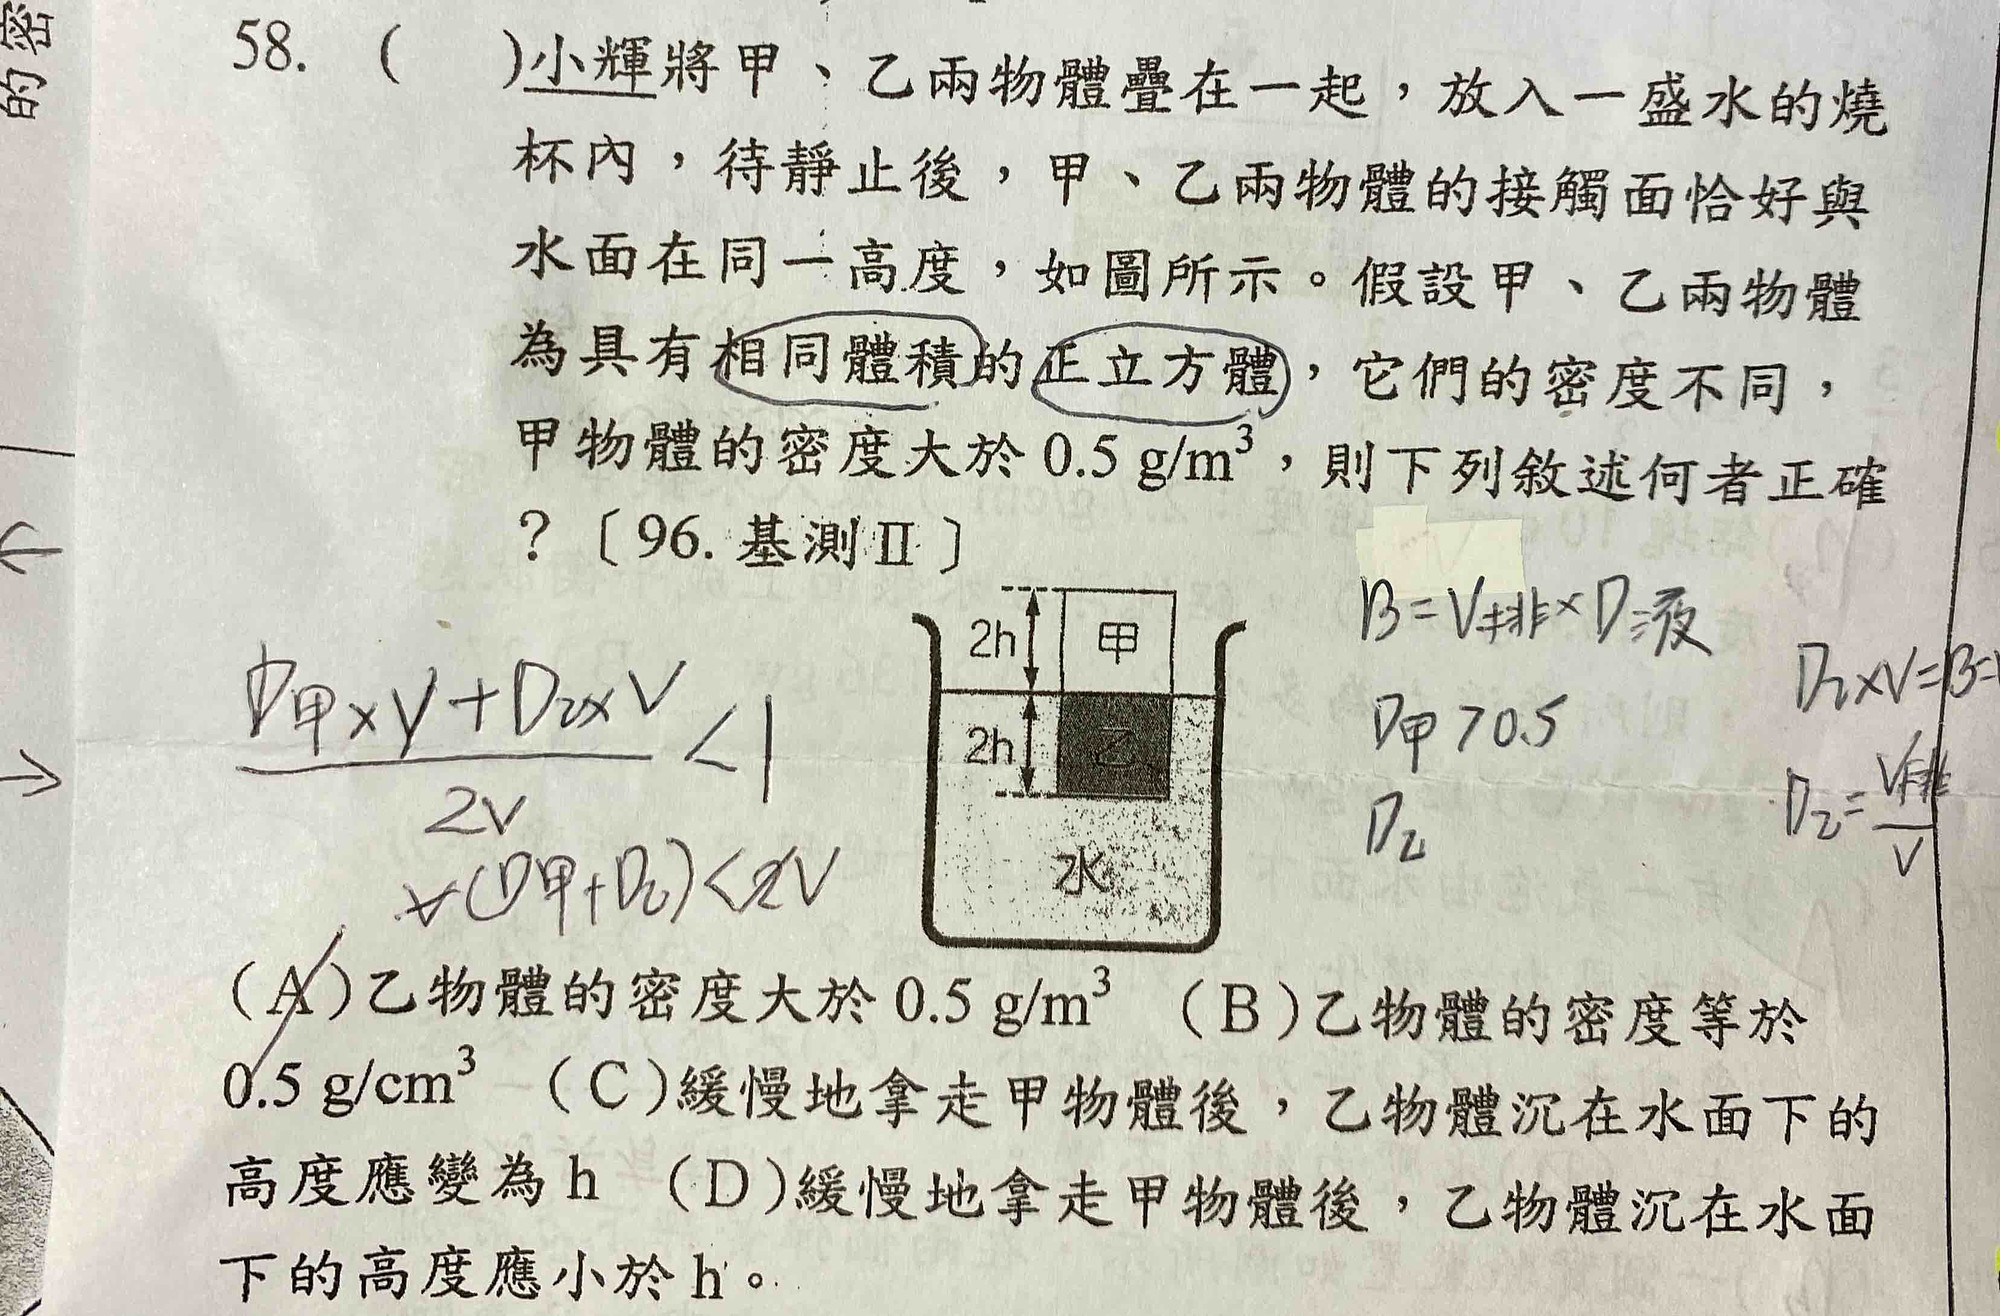 的密
58. (　)小輝將甲、乙兩物體疊在一起，放入一盛水的燒
杯內，待靜止後，甲、乙兩物體的接觸面恰好與
水面在同一高度，如圖所示。假設甲、乙兩物體
為具有相同體積的正立方體，它們的密度不同，
甲物體的密度大於 0.5 g/m³，則下列敘述何者正確
？〔96. 基測Ⅱ〕
B=V排×D液
D甲>0.5
D乙
D乙×V=B=
D乙=V排/V
(D甲×V+D乙×V)/2V<1
V(D甲+D乙)<2V
2h 甲
2h 乙
水
(A)乙物體的密度大於 0.5 g/m³　(B)乙物體的密度等於
0.5 g/cm³　(C)緩慢地拿走甲物體後，乙物體沉在水面下的
高度應變為 h　(D)緩慢地拿走甲物體後，乙物體沉在水面
下的高度應小於 h。